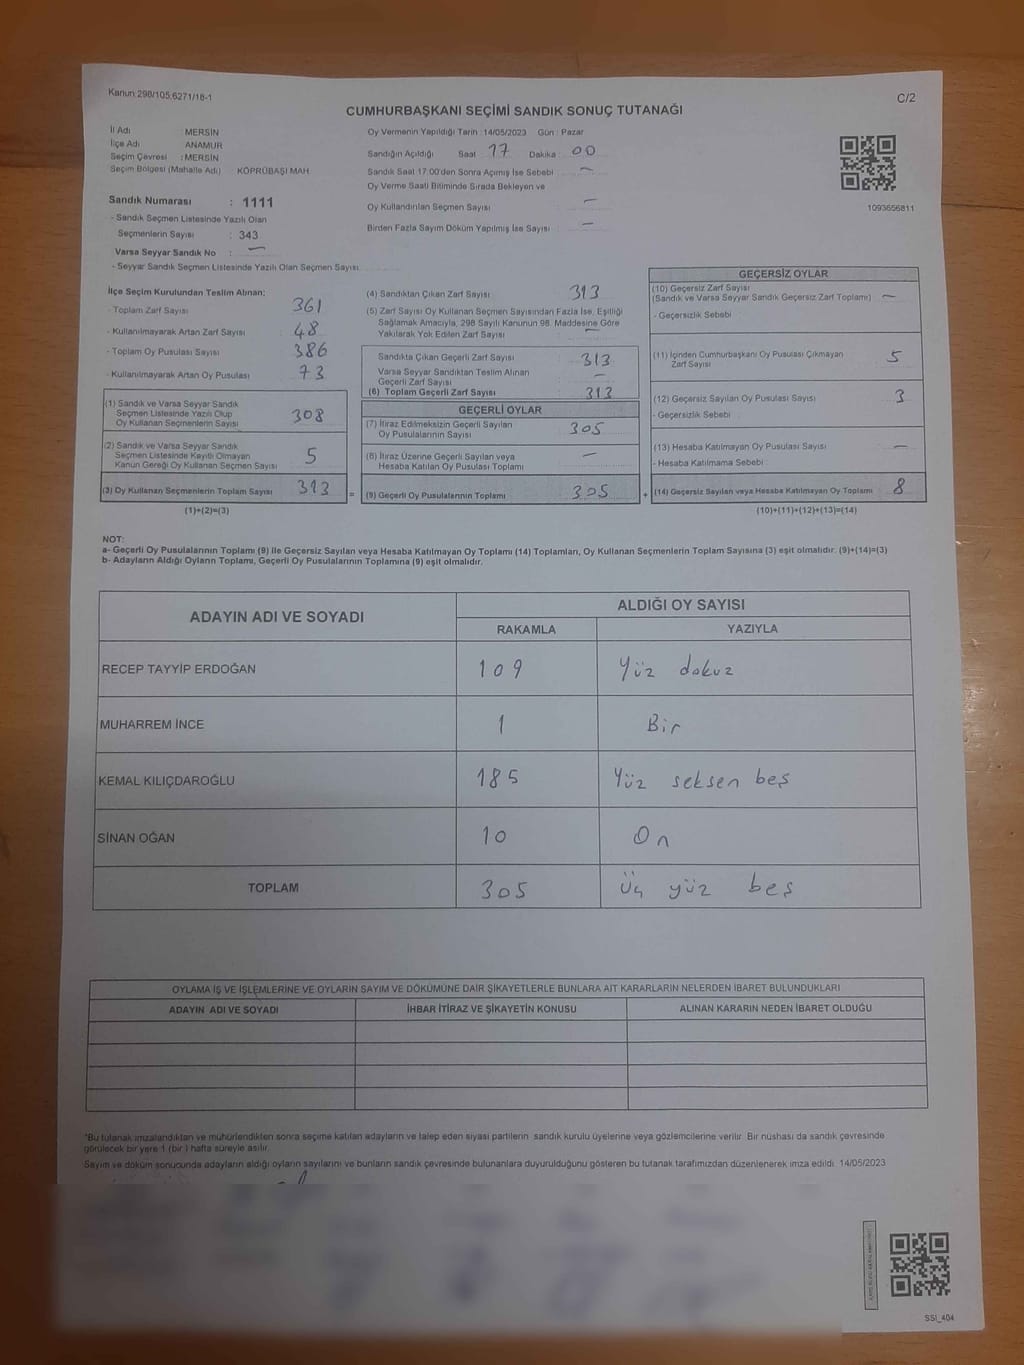 Kanun:298/105;6271/18-1
C/2
CUMHURBAŞKANI SEÇİMİ SANDIK SONUÇ TUTANAĞI
İl Adı : MERSİN
İlçe Adı : ANAMUR
Seçim Çevresi : MERSİN
Seçim Bölgesi (Mahalle Adı) KÖPRÜBAŞI MAH.
Oy Vermenin Yapıldığı Tarih : 14/05/2023 Gün : Pazar
Sandığın Açıldığı Saat 17 Dakika 00
Sandık Saat 17:00'den Sonra Açılmış İse Sebebi : —
Oy Verme Saati Bitiminde Sırada Bekleyen ve
Oy Kullandırılan Seçmen Sayısı —
Birden Fazla Sayım Döküm Yapılmış İse Sayısı : —
1093656811
Sandık Numarası : 1111
- Sandık Seçmen Listesinde Yazılı Olan
Seçmenlerin Sayısı : 343
Varsa Seyyar Sandık No : —
- Seyyar Sandık Seçmen Listesinde Yazılı Olan Seçmen Sayısı
İlçe Seçim Kurulundan Teslim Alınan;
- Toplam Zarf Sayısı 361
- Kullanılmayarak Artan Zarf Sayısı 48
- Toplam Oy Pusulası Sayısı 386
- Kullanılmayarak Artan Oy Pusulası 73
(1) Sandık ve Varsa Seyyar Sandık
Seçmen Listesinde Yazılı Olup
Oy Kullanan Seçmenlerin Sayısı 308
(2) Sandık ve Varsa Seyyar Sandık
Seçmen Listesinde Kayıtlı Olmayan
Kanun Gereği Oy Kullanan Seçmen Sayısı 5
(3) Oy Kullanan Seçmenlerin Toplam Sayısı 313
(1)+(2)=(3)
=
(4) Sandıktan Çıkan Zarf Sayısı 313
(5) Zarf Sayısı Oy Kullanan Seçmen Sayısından Fazla İse, Eşitliği
Sağlamak Amacıyla, 298 Sayılı Kanunun 98. Maddesine Göre
Yakılarak Yok Edilen Zarf Sayısı —
Sandıkta Çıkan Geçerli Zarf Sayısı 313
Varsa Seyyar Sandıktan Teslim Alınan
Geçerli Zarf Sayısı —
(6) Toplam Geçerli Zarf Sayısı 313
GEÇERLİ OYLAR
(7) İtiraz Edilmeksizin Geçerli Sayılan
Oy Pusulalarının Sayısı 305
(8) İtiraz Üzerine Geçerli Sayılan veya
Hesaba Katılan Oy Pusulası Toplamı —
(9) Geçerli Oy Pusulalarının Toplamı 305
+
GEÇERSİZ OYLAR
(10) Geçersiz Zarf Sayısı
(Sandık ve Varsa Seyyar Sandık Geçersiz Zarf Toplamı) —
- Geçersizlik Sebebi
(11) İçinden Cumhurbaşkanı Oy Pusulası Çıkmayan
Zarf Sayısı 5
(12) Geçersiz Sayılan Oy Pusulası Sayısı 3
- Geçersizlik Sebebi
(13) Hesaba Katılmayan Oy Pusulası Sayısı —
- Hesaba Katılmama Sebebi
(14) Geçersiz Sayılan veya Hesaba Katılmayan Oy Toplamı 8
(10)+(11)+(12)+(13)=(14)
NOT:
a- Geçerli Oy Pusulalarının Toplamı (9) ile Geçersiz Sayılan veya Hesaba Katılmayan Oy Toplamı (14) Toplamları, Oy Kullanan Seçmenlerin Toplam Sayısına (3) eşit olmalıdır. (9)+(14)=(3)
b- Adayların Aldığı Oyların Toplamı, Geçerli Oy Pusulalarının Toplamına (9) eşit olmalıdır.
ADAYIN ADI VE SOYADI
ALDIĞI OY SAYISI
RAKAMLA YAZIYLA
RECEP TAYYİP ERDOĞAN 109 Yüz dokuz
MUHARREM İNCE 1 Bir
KEMAL KILIÇDAROĞLU 185 Yüz seksen beş
SİNAN OĞAN 10 On
TOPLAM 305 Üç yüz beş
OYLAMA İŞ VE İŞLEMLERİNE VE OYLARIN SAYIM VE DÖKÜMÜNE DAİR ŞİKAYETLERLE BUNLARA AİT KARARLARIN NELERDEN İBARET BULUNDUKLARI
ADAYIN ADI VE SOYADI İHBAR İTİRAZ VE ŞİKAYETİN KONUSU ALINAN KARARIN NEDEN İBARET OLDUĞU
*Bu tutanak imzalandıktan ve mühürlendikten sonra seçime katılan adayların ve talep eden siyasi partilerin sandık kurulu üyelerine veya gözlemcilerine verilir. Bir nüshası da sandık çevresinde
görülecek bir yere 1 (bir ) hafta süreyle asılır.
Sayım ve döküm sonucunda adayların aldığı oyların sayılarını ve bunların sandık çevresinde bulunanlara duyurulduğunu gösteren bu tutanak tarafımızdan düzenlenerek imza edildi. 14/05/2023
SSI_404